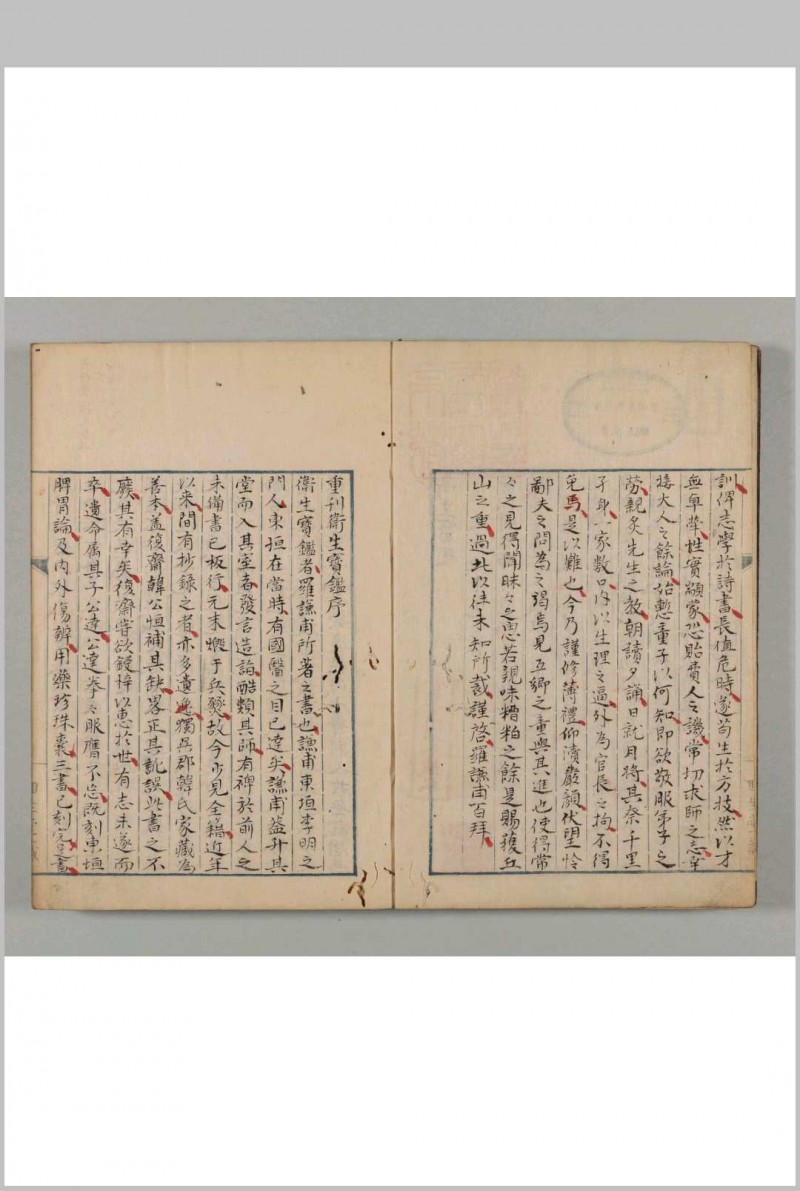 訓俾志學於詩書長值危時遂苟生於方技然以才
無卓犖性實顓蒙恐貽費人之譏常切求師之志幸
接大人之餘論始慙童子以何知即欲敬服弟子之
勞親炙先生之教朝讀夕誦日就月將其奈千里
子身一家數口內以生理之逼外為官長之拘不得
免焉是以難也今乃謹修薄禮仰瀆嚴顏伏望怜
鄙夫之問為之竭焉見互鄉之童與其進也使得常
々之見得聞昧々之思若親味糟粕之餘是賜獲丘
山之重過此以往未知所裁謹啓羅謙甫百拜
重刊衛生寶鑑序
衛生寶鑑者羅謙甫所著之書也謙甫東垣李明之
門人東垣在當時有國醫之目已達矣謙甫益升其
堂而入其室者發言造論酷類其師有裨於前人之
未備書已板行元末燬于兵燹故今少見全籍近年
以來間有抄錄之者亦多遺逸獨吳郡韓氏家藏為
善本盖復齋韓公恒補其缺畧正其訛誤此書之不
廢其有幸矣復齋嘗欲鋟梓以惠於世有志未遂而
卒遺命属其子公達公達拳々服膺不忘既刻東垣
脾胃論及內外傷辨用藥珍珠囊三書已刻完是書